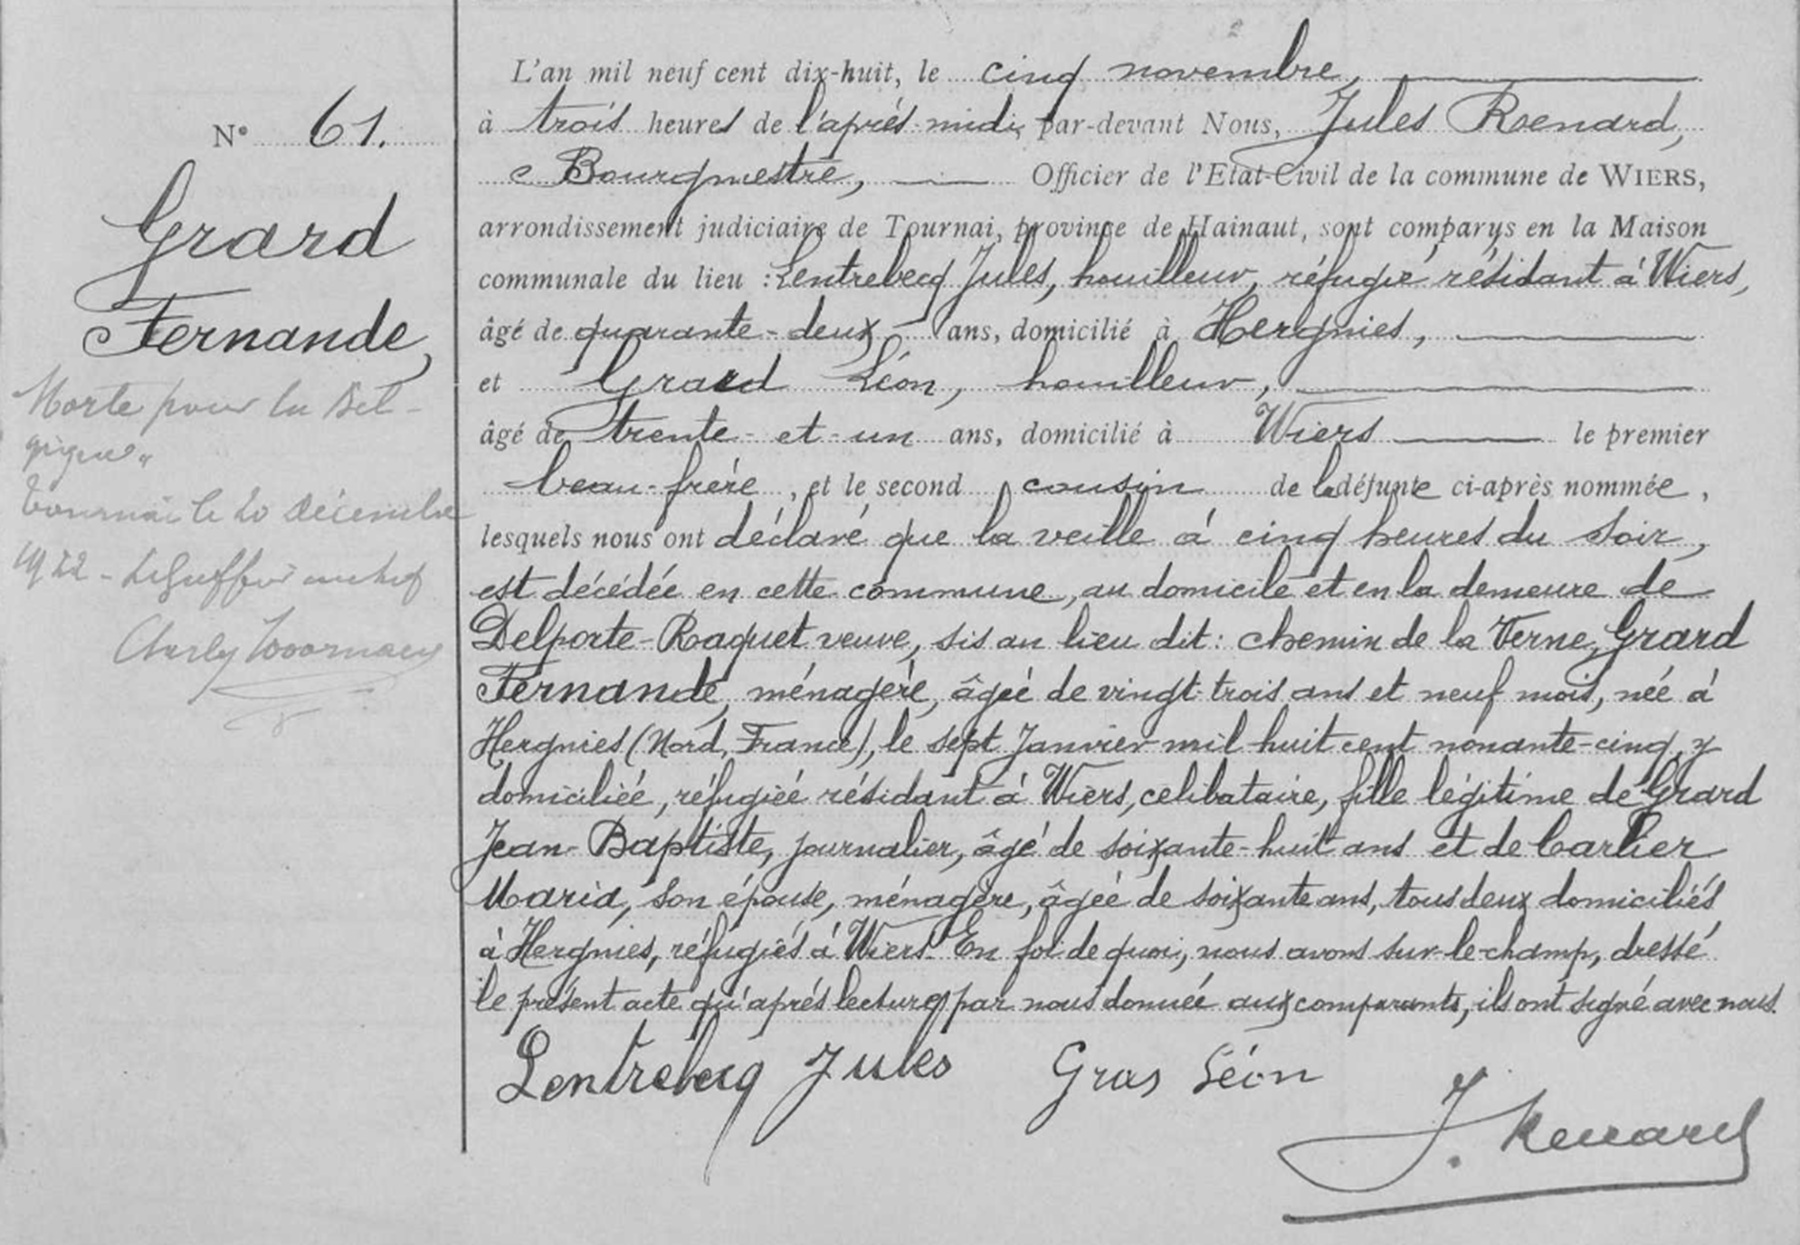 N° 61.
Grard
Fernande,
Morte pour la Bel-
gique"
Tournai le 20 Décembre
1922 - Le Greffier en chef
L'an mil neuf cent dix-huit, le cinq novembre,
à trois heures de l'après-midi, par-devant Nous, Jules Renard,
Bourgmestre, Officier de l'Etat-Civil de la commune de WIERS,
arrondissement judiciaire de Tournai, province de Hainaut, sont comparus en la Maison
communale du lieu : Lentrebecq Jules, houilleur, réfugié résidant à Wiers,
âgé de quarante-deux ans, domicilié à Hergnies,
et Grard Léon, houilleur,
âgé de trente-et-un ans, domicilié à Wiers le premier
beau-frère, et le second cousin de la défunte ci-après nommée,
lesquels nous ont déclaré que la veille à cinq heures du soir,
est décédée en cette commune, au domicile et en la demeure de
Delporte-Raquet veuve, sis au lieu dit: chemin de la Verne, Grard
Fernande, ménagère, âgée de vingt-trois ans et neuf mois, née à
Hergnies (Nord, France), le sept Janvier mil huit cent nonante-cinq, y
domiciliée, réfugiée résidant à Wiers, celibataire, fille légitime de Grard
Jean-Baptiste, journalier, âgé de soixante-huit ans et de Carlier
Maria, son épouse, ménagère, âgée de soixante ans, tous deux domiciliés
à Hergnies, réfugiés à Wiers. En foi de quoi, nous avons sur-le-champ, dressé
le présent acte qu'après lecture par nous donnée aux comparants, ils ont signé avec nous.
Lentrebecq Jules Gras Léon
J. Renard